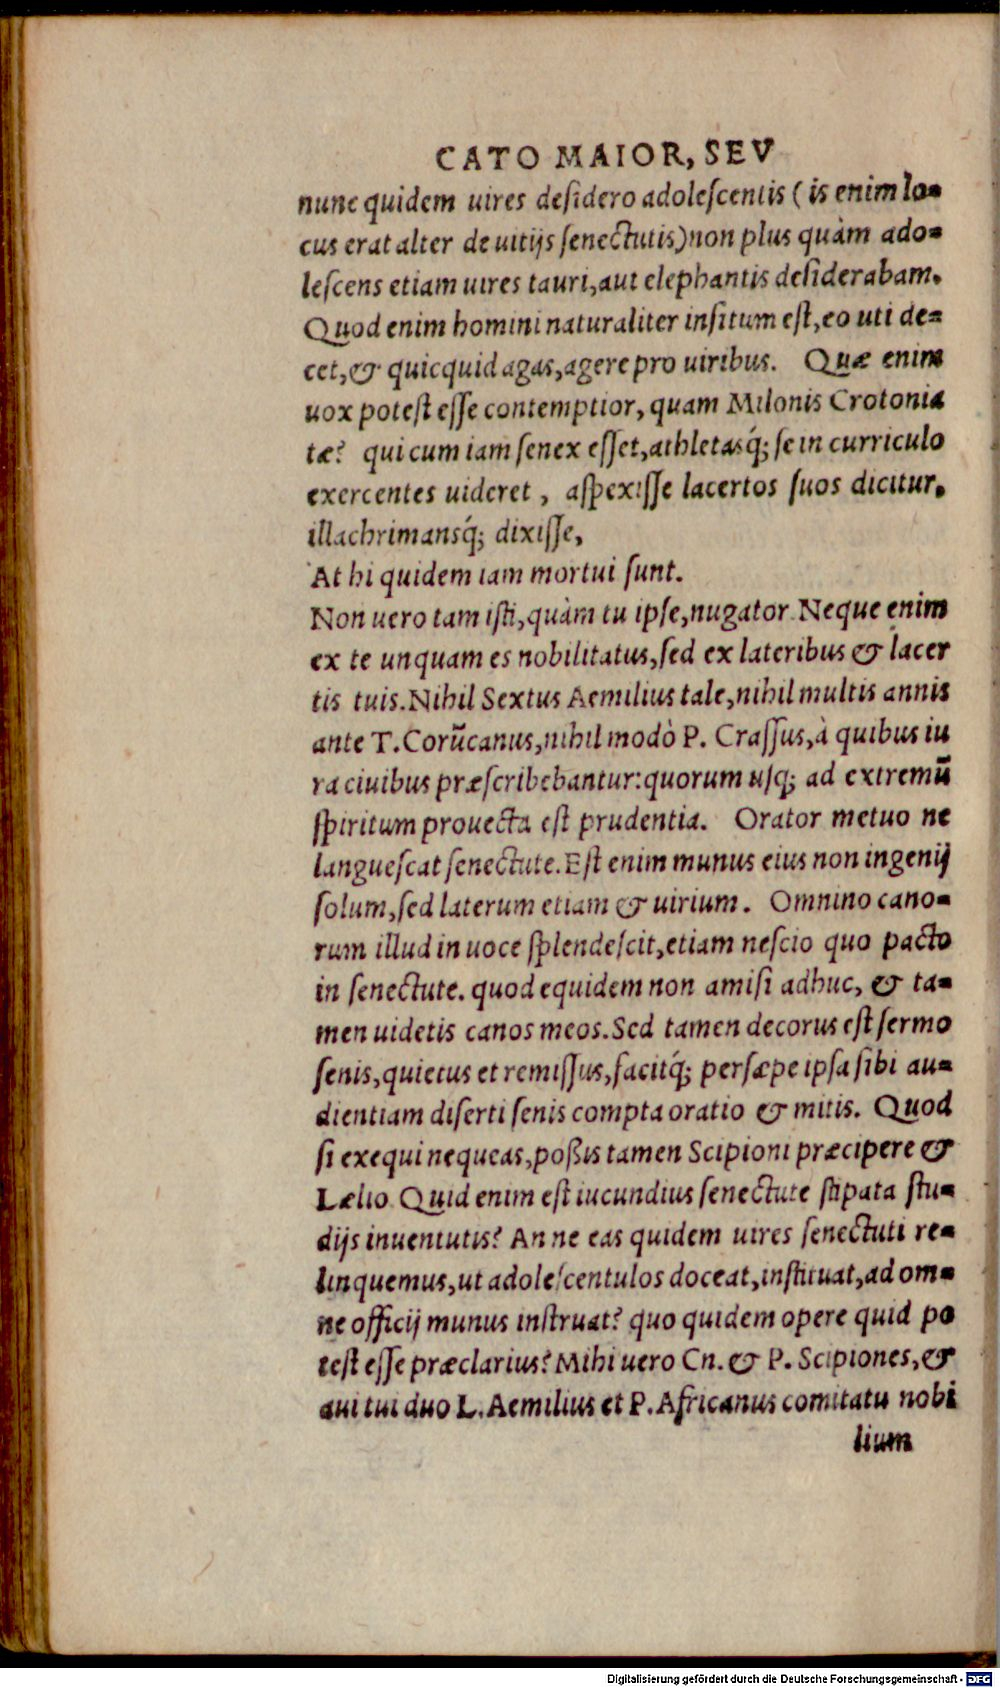 CATO MAIOR, SEV
nunc quidem uires deſidero adoleſcentis (is enim lo=
cus erat alter de uitijs ſenectutis) non plus quàm ado=
leſcens etiam uires tauri, aut elephantis deſiderabam.
Quod enim homini naturaliter inſitum eſt, eo uti de=
cet, & quicquid agas, agere pro uiribus. Quæ enim
uox poteſt eſſe contemptior, quam Milonis Crotonia
tæ? qui cum iam ſenex eſſet, athletasq́; ſe in curriculo
exercentes uideret, aſpexiſſe lacertos ſuos dicitur,
illachrimansq́; dixiſſe,
At hi quidem iam mortui ſunt.
Non uero tam iſti, quàm tu ipſe, nugator. Neque enim
ex te unquam es nobilitatus, ſed ex lateribus & lacer
tis tuis. Nihil Sextus Aemilius tale, nihil multis annis
ante T. Corūcanus, nihil modò P. Craſſus, à quibus iu
ra ciuibus præſcribebantur: quorum uſq; ad extremū
ſpiritum prouecta eſt prudentia. Orator metuo ne
langueſcat ſenectute. Eſt enim munus eius non ingenij
ſolum, ſed laterum etiam & uirium. Omnino cano=
rum illud in uoce ſplendeſcit, etiam neſcio quo pacto
in ſenectute. quod equidem non amiſi adhuc, & ta=
men uidetis canos meos. Sed tamen decorus eſt ſermo
ſenis, quietus et remiſſus, facitq́; perſæpe ipſa ſibi au=
dientiam diſerti ſenis compta oratio & mitis. Quod
ſi exequi nequeas, poßis tamen Scipioni præcipere &
Lælio. Quid enim eſt iucundius ſenectute ſtipata ſtu=
dijs inuentutis? An ne eas quidem uires ſenectuti re=
linquemus, ut adoleſcentulos doceat, inſtituat, ad om=
ne officij munus inſtruat? quo quidem opere quid po
teſt eſſe præclarius? Mihi uero Cn. & P. Scipiones, &
aui tui duo L. Aemilius et P. Africanus comitatu nobi
lium
Digitalisierung gefördert durch die Deutsche Forschungsgemeinschaft - DFG